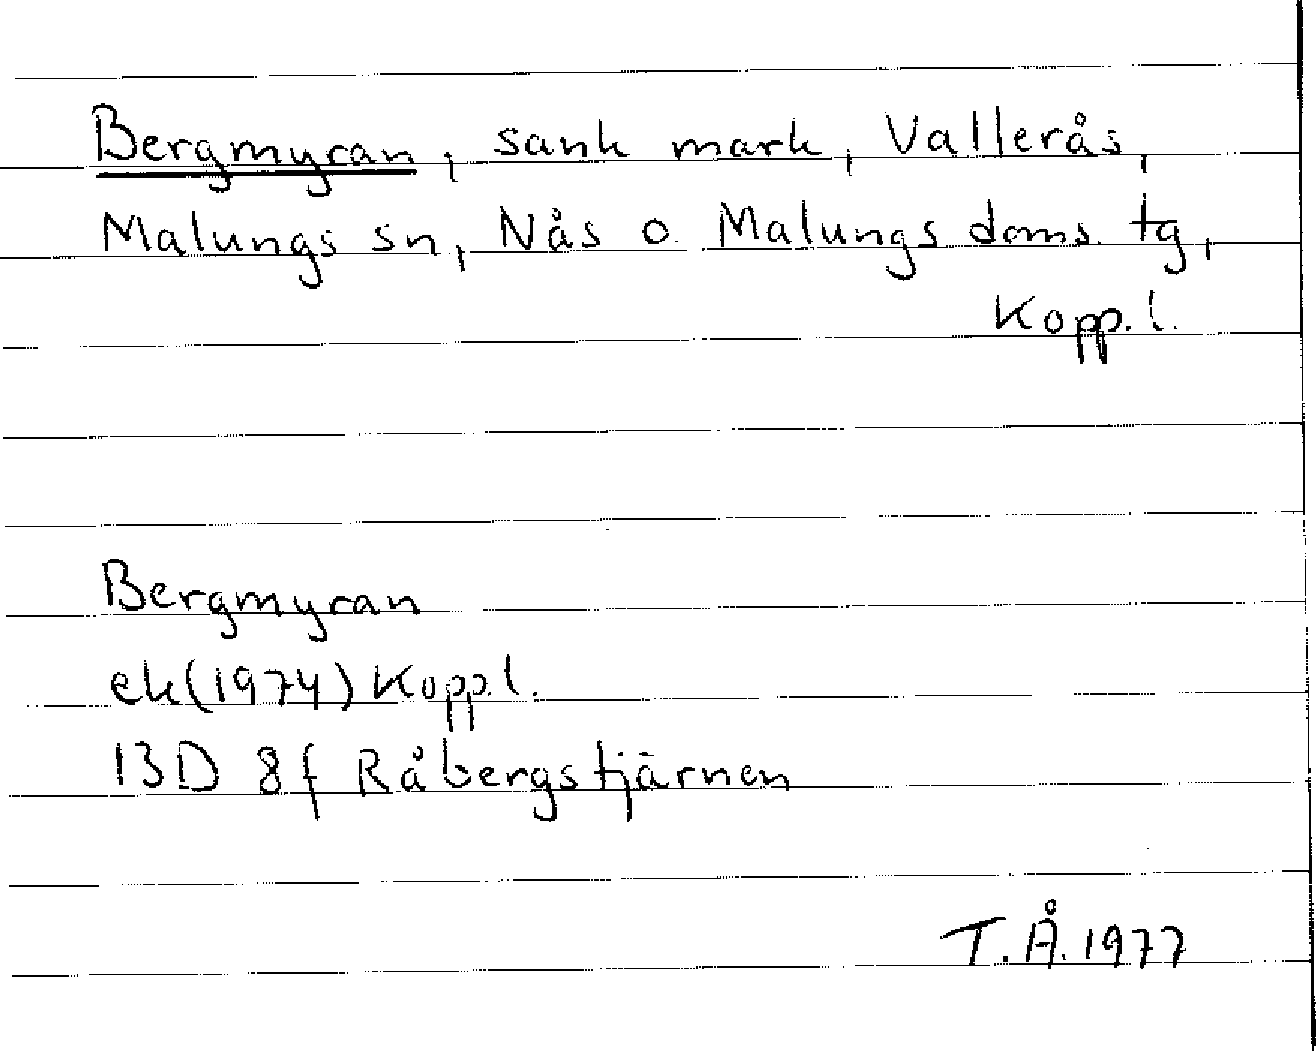 Bergmyran, sank mark, Vallerås,
Malungs sn, Nås o. Malungs doms. tg,
Kopp. l.
Bergmyran
ek (1974) Kopp. l.
13D 8f Råbergstjärnen
T.Å. 1977